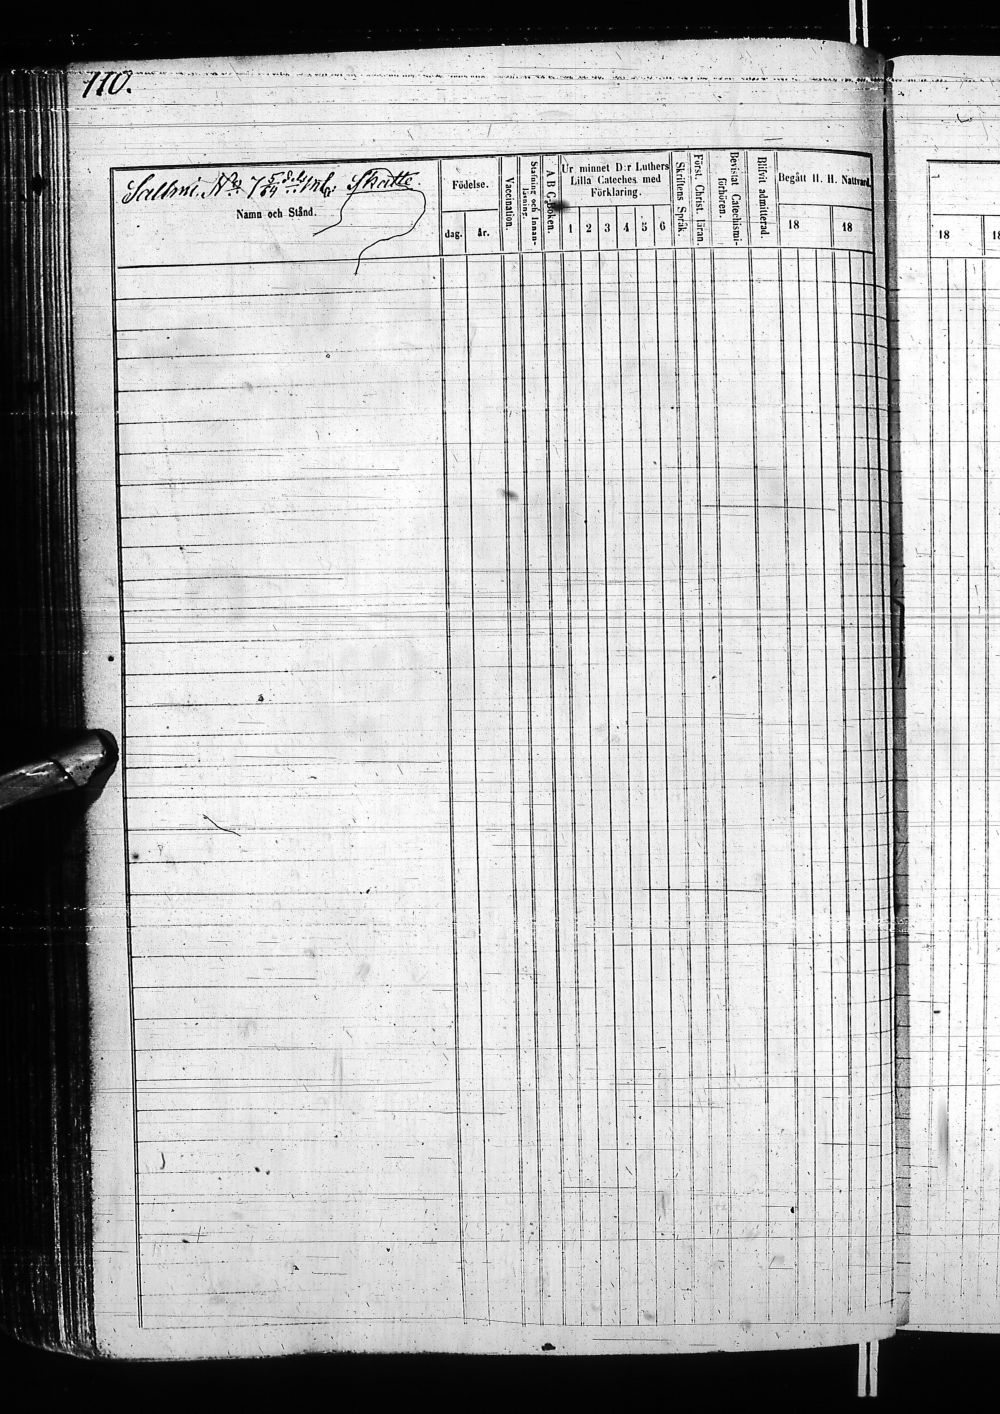 110.
Sallmi. N:o 7 5/24 mtl Skatte
Namn och Stånd.
Födelse.
dag.
år.
Vaccination.
Stafning och Innan-
läsning.
A B C-Boken.
Ur minnet D:r Luthers
Lilla Cateches med
Förklaring.
1 2 3 4 5 6
Skriftens Språk.
Först. Christ. läran.
Bevistat Catechismi-
förhören.
Blifvit admitterad.
Begått H. H. Nattvard.
18 18
18